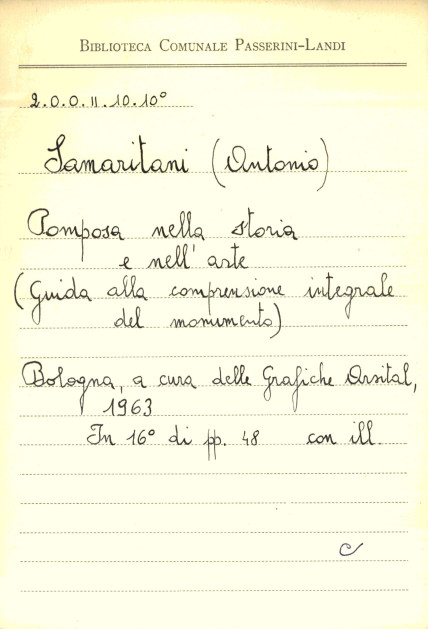 BIBLIOTECA COMUNALE PASSERINI-LANDI
2.0.0.II.10.10°
Samaritani (Antonio)
Pomposa nella storia
e nell' arte
(Guida alla comprensione integrale
del monumento)
Bologna, a cura delle Grafiche Orsital,
1963
In 16° di pp. 48 con ill.
C